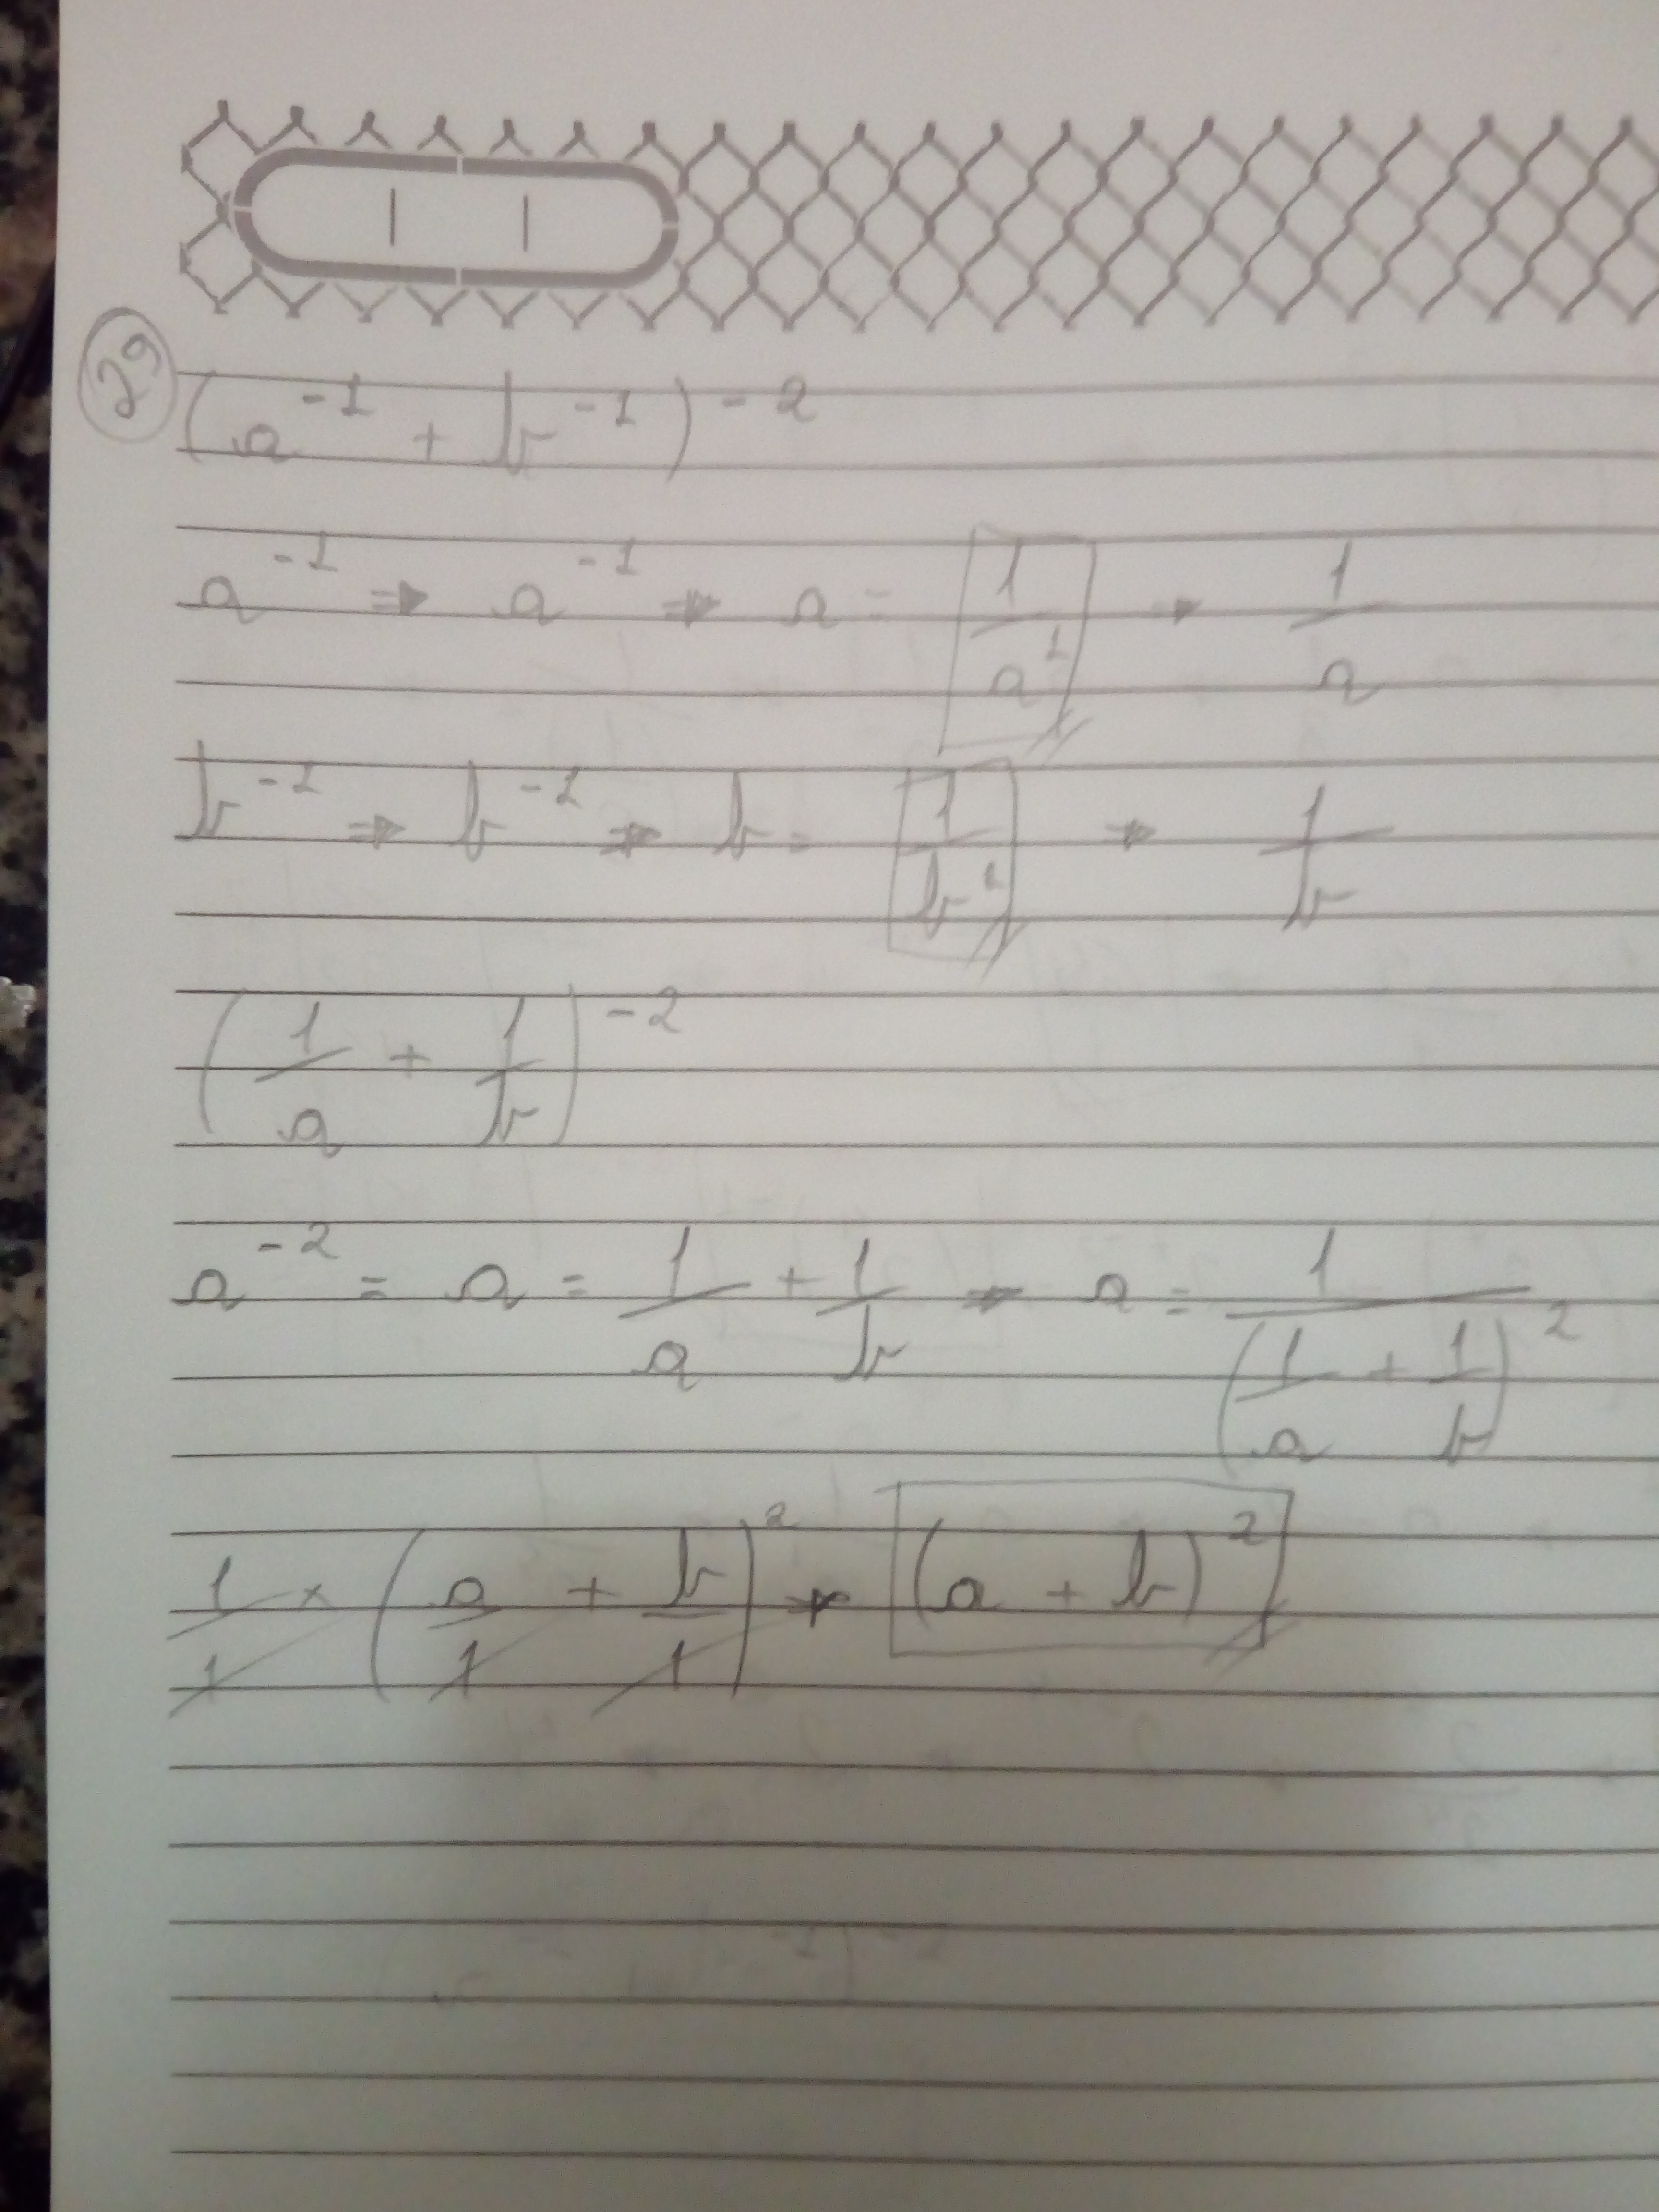 29
(a⁻¹ + b⁻¹)⁻²
a⁻¹ ⇒ a⁻¹ ⇒ a = 1/a¹ → 1/a
b⁻¹ ⇒ b⁻¹ ⇒ b = 1/b¹ → 1/b
(1/a + 1/b)⁻²
a⁻² = a = 1/a + 1/b → a = 1/(1/a + 1/b)²
1/1 × (a/1 + b/1)² → (a + b)²